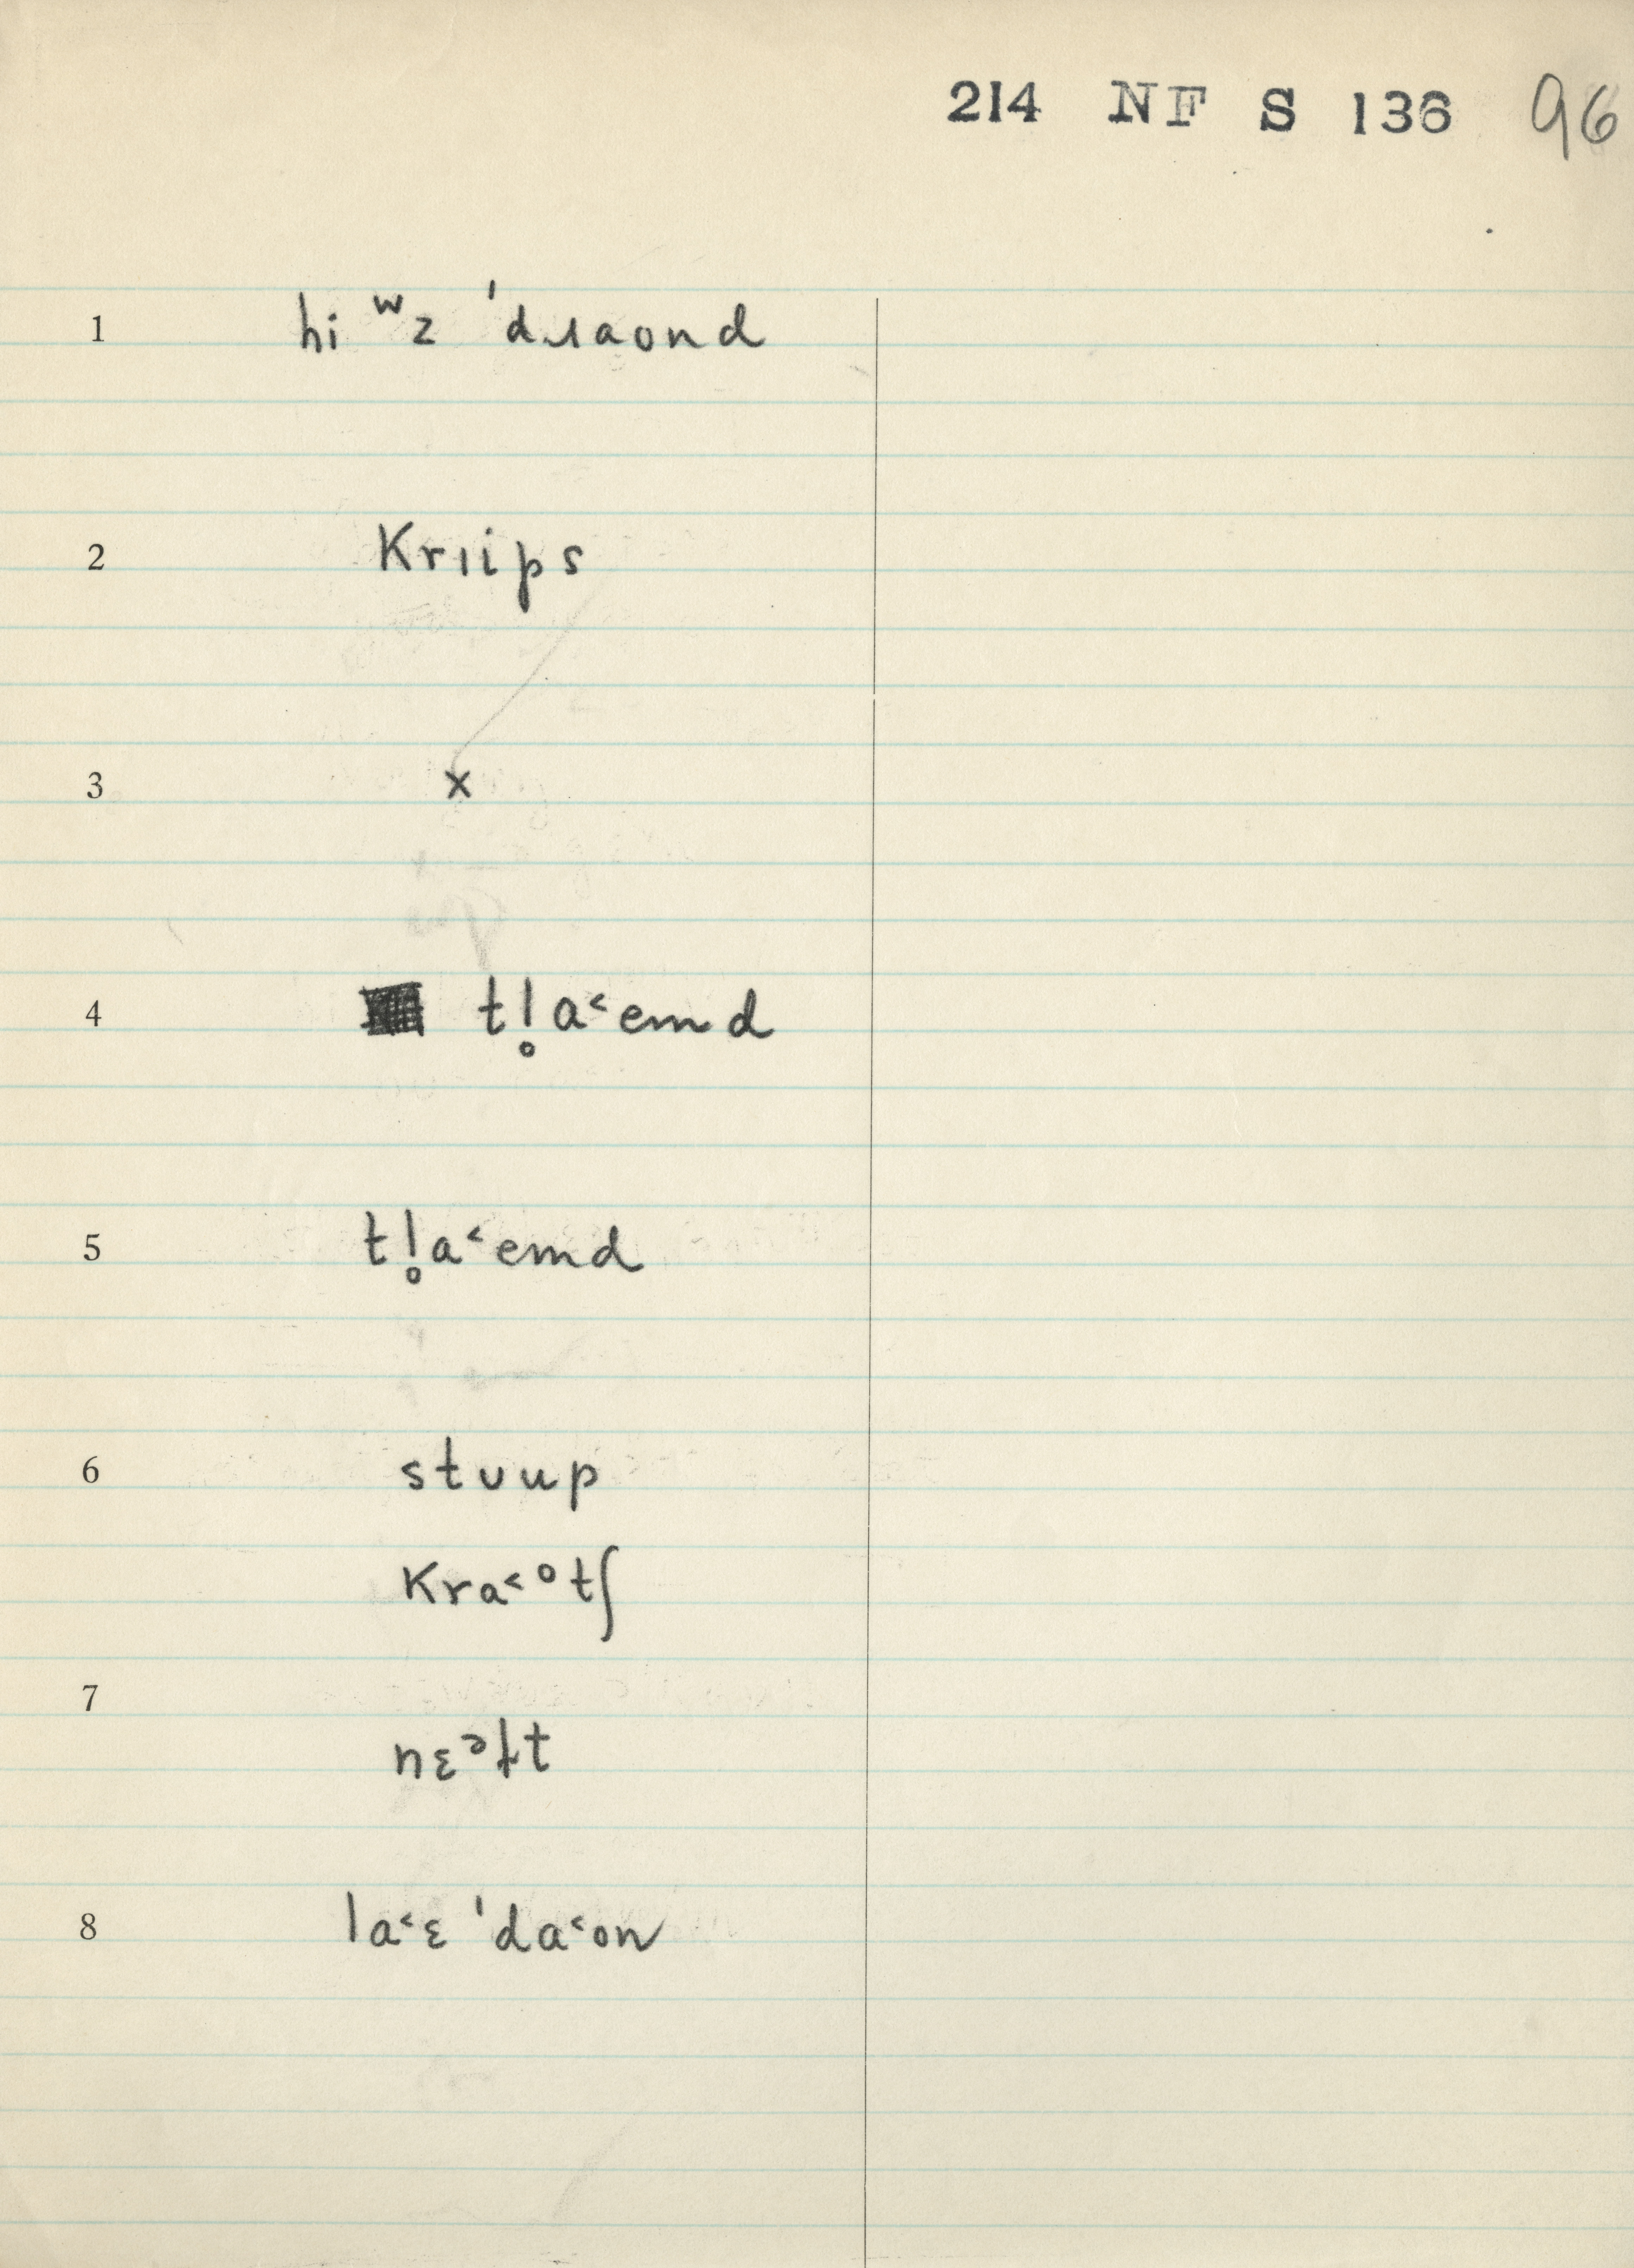 214 NF S 136 96
1 hi ʷz ˈdɹaond
2 krɪips
3 x
4 tl̥a˂emd
5 tl̥a˂emd
6 stʊup
kra˂ᵒtʃ
7
nɛᵊɫt
8 la˂ɛ ˈda˂on